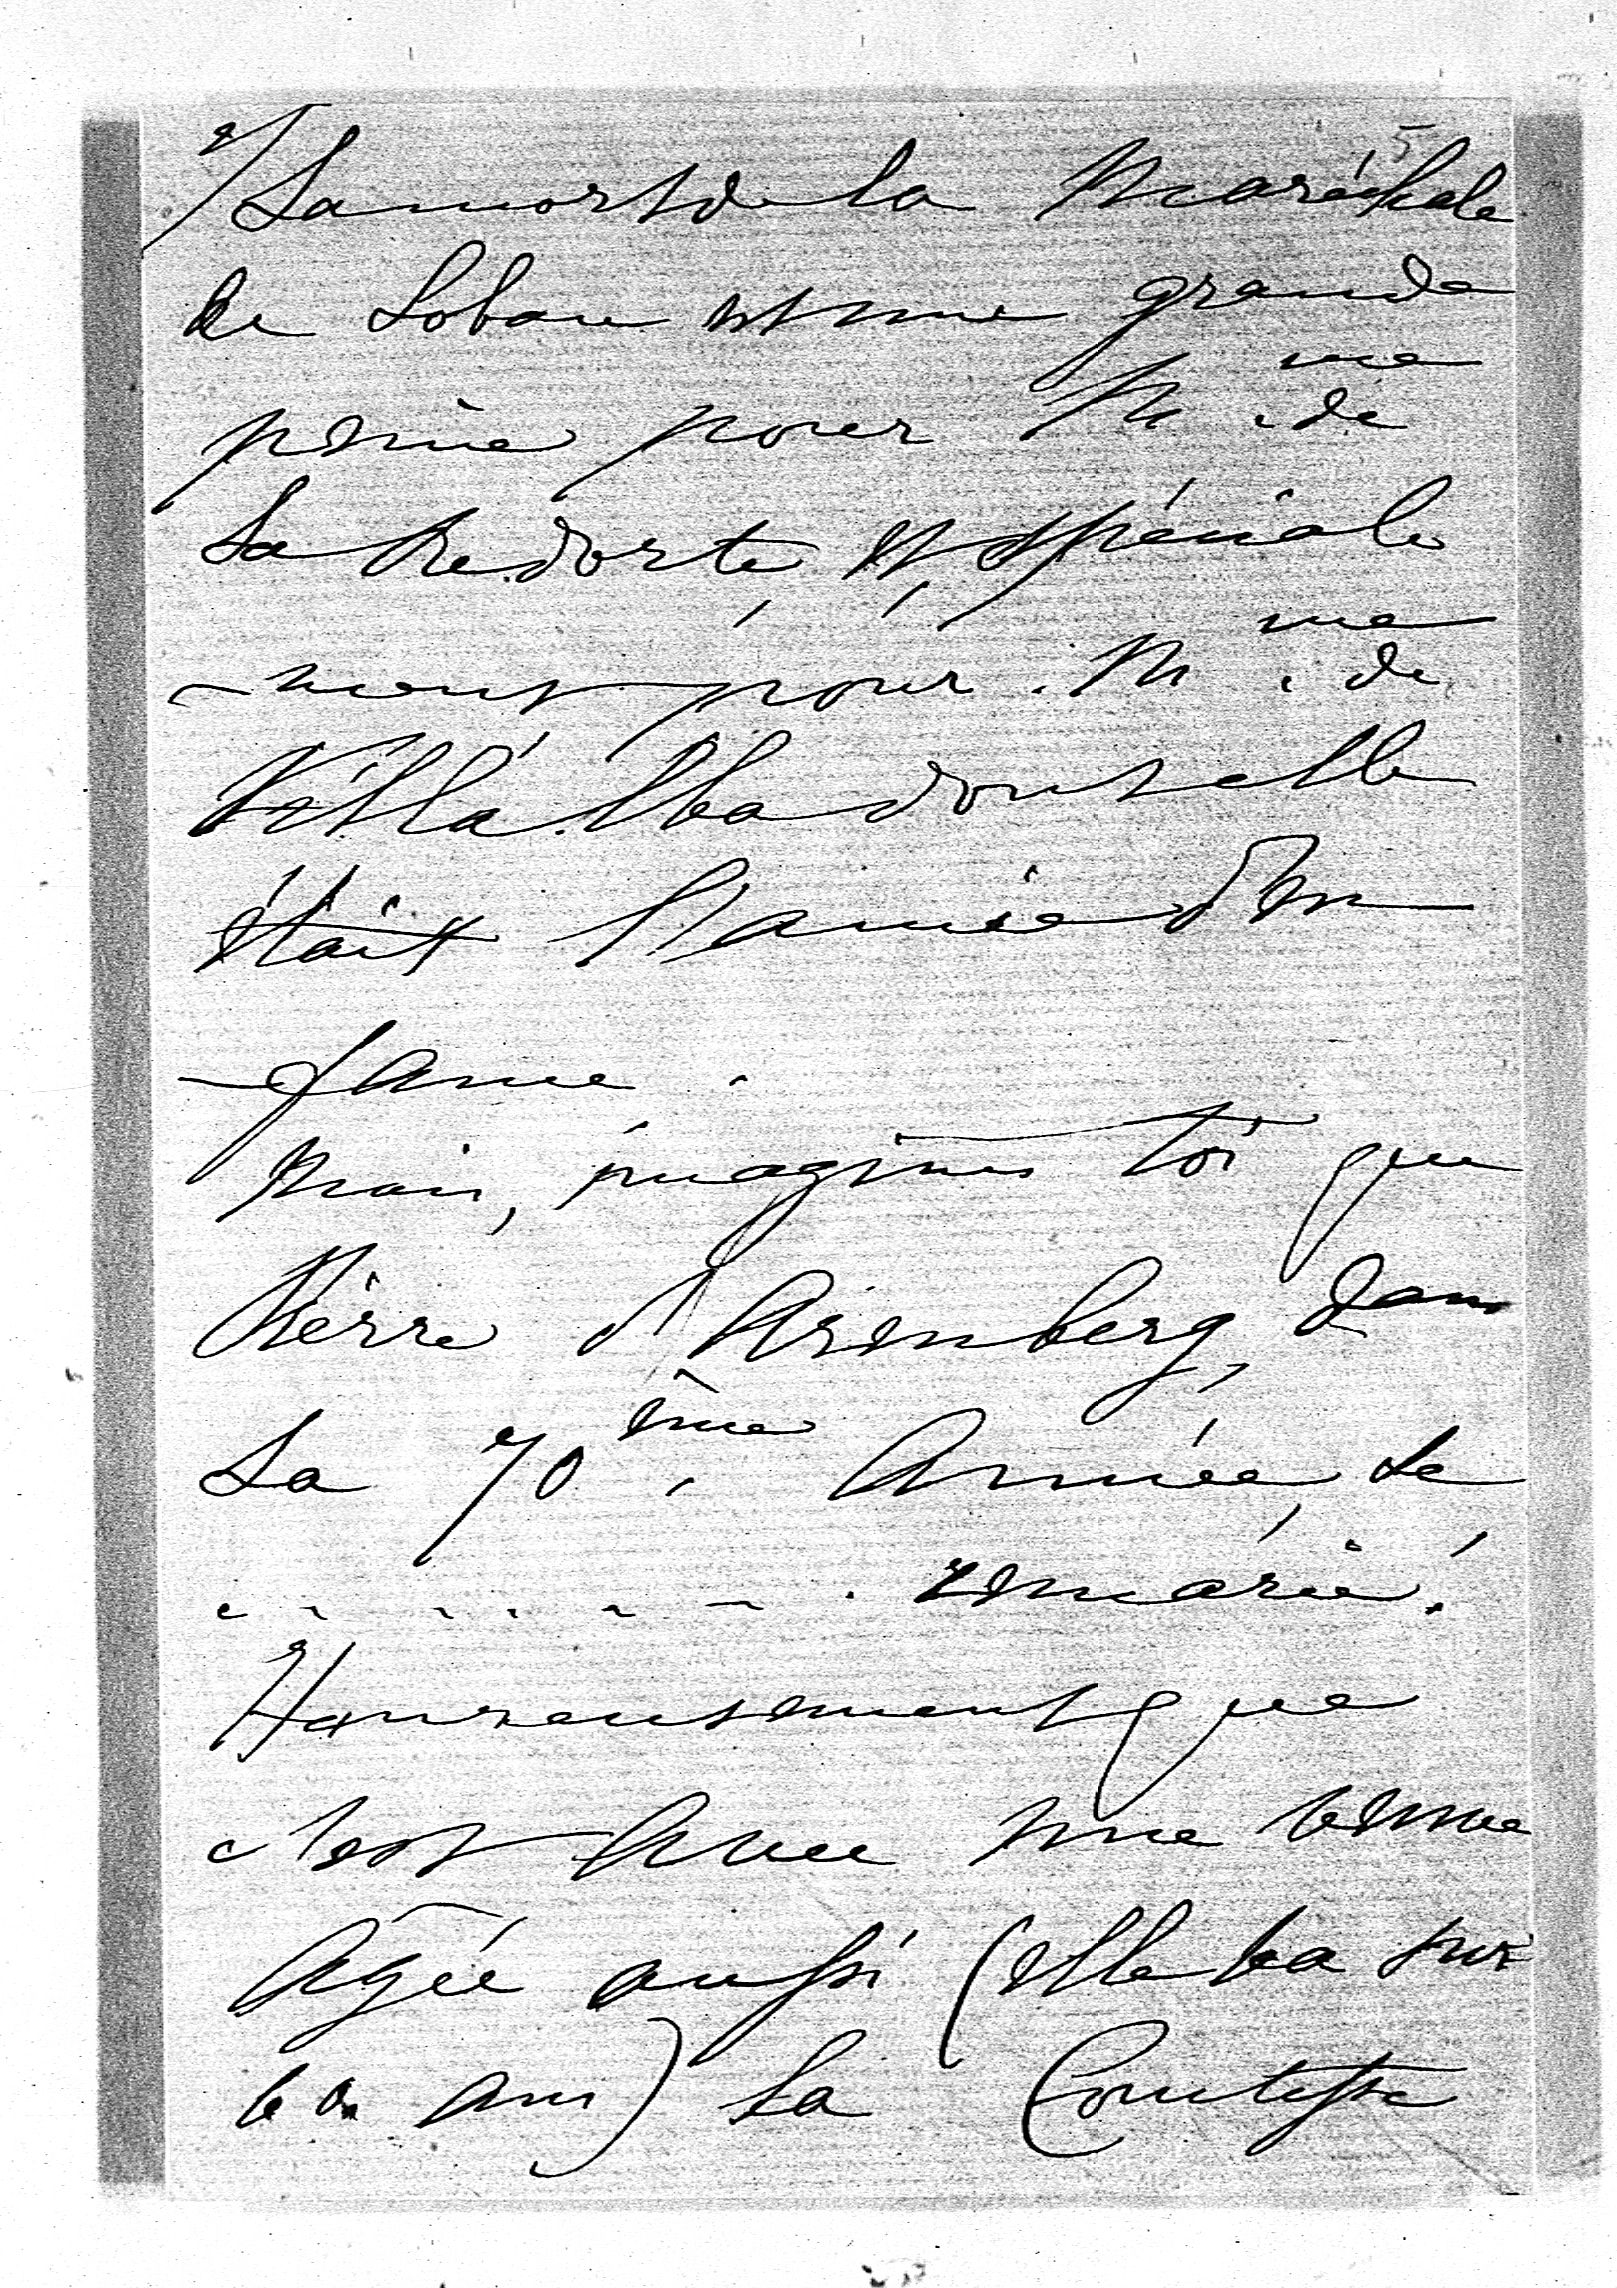 5
La mort de la Maréchale
de Lobau est une grande
peine pour Mme de
La Redorte, et, spéciale
-ment pour Mme de
Villa Alba dont elle
était l'amie d'en
-fance.
Mais, imagines toi que
Pierre d'Arenberg, dans
sa 70ème Année, se
. . . . . . . remarié !
Heureusement que
c'est avec une venue
Agée aussi (elle va sur
60 ans) la Comtesse